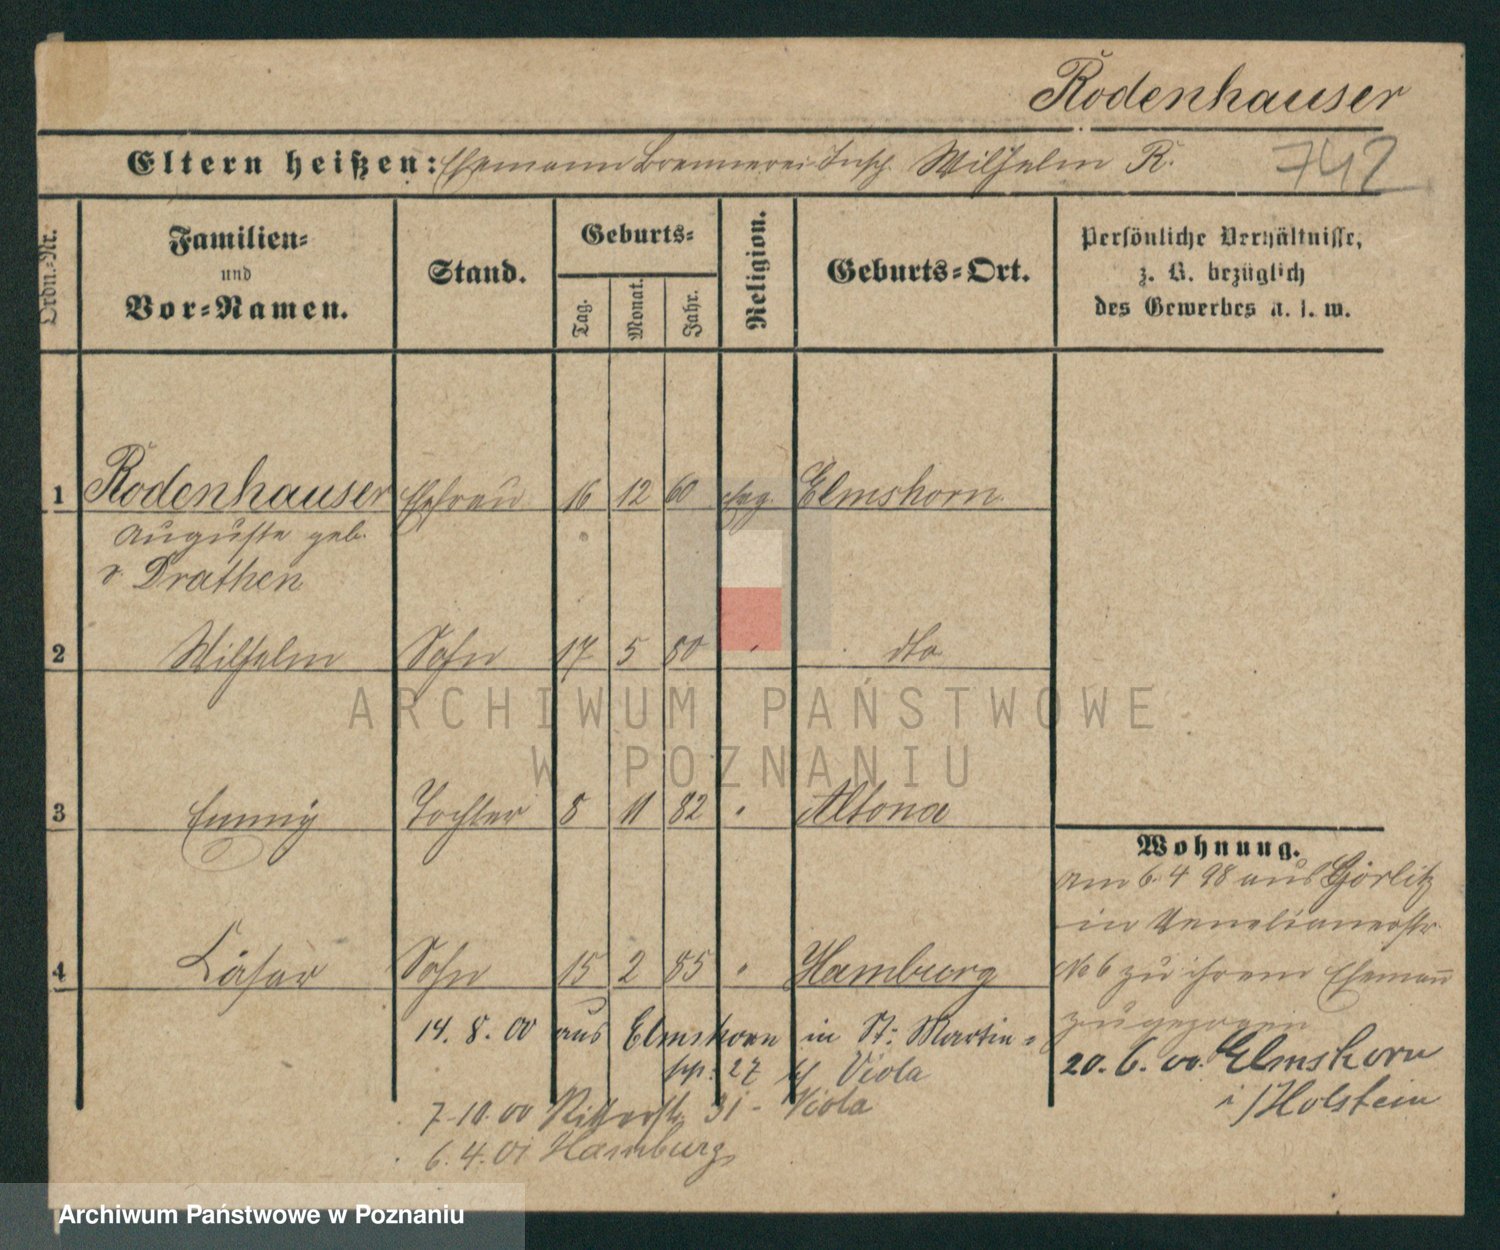 Rodenhauser
Eltern heißen: Ehemann Brennerei-Insp. Wilhelm R.
742
Ordn.-Nr.
Familien-
und
Vor-Namen.
Stand.
Geburts-
Tag.
Monat.
Jahr.
Religion.
Geburts-Ort.
Persönliche Verhältnisse,
z. B. bezüglich
des Gewerbes u. s. w.
1 Rodenhauser Ehefrau 16 12 60 evg. Elmshorn
Auguste geb.
v. Drathen
2 Wilhelm Sohn 17 5 80 " dto
3 Emmy Tochter 8 11 82 " Altona
4 Cäsar Sohn 15 2 85 " Hamburg
Wohnung.
am 6.4 98 aus Görlitz
in Venetianerstr.
No 6 zu ihrem Ehemann
zugezogen
20. 6. 00. Elmshorn
i/Holstein
14. 8. 00 aus Elmshorn in St: Martin-
27 Viola
7-10.00 Ritterstr. 31- Viola
6.4.01 Hamburg
ARCHIWUM PAŃSTWOWE
W POZNANIU
Archiwum Państwowe w Poznaniu